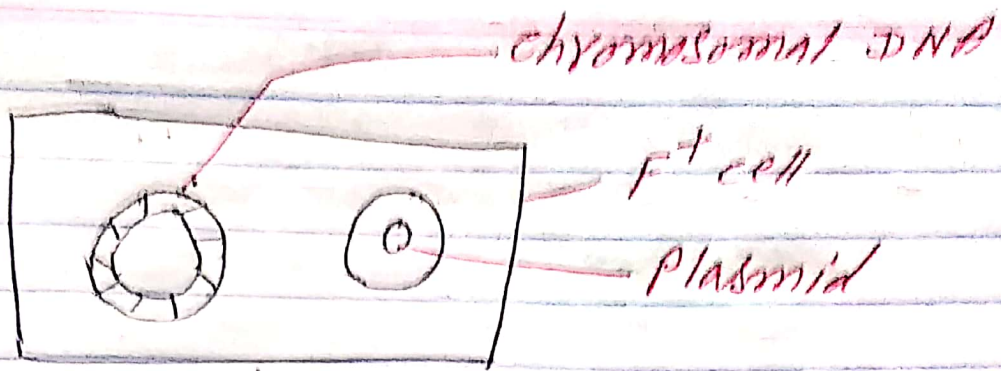 Chromosomal DNA
F+ cell
Plasmid